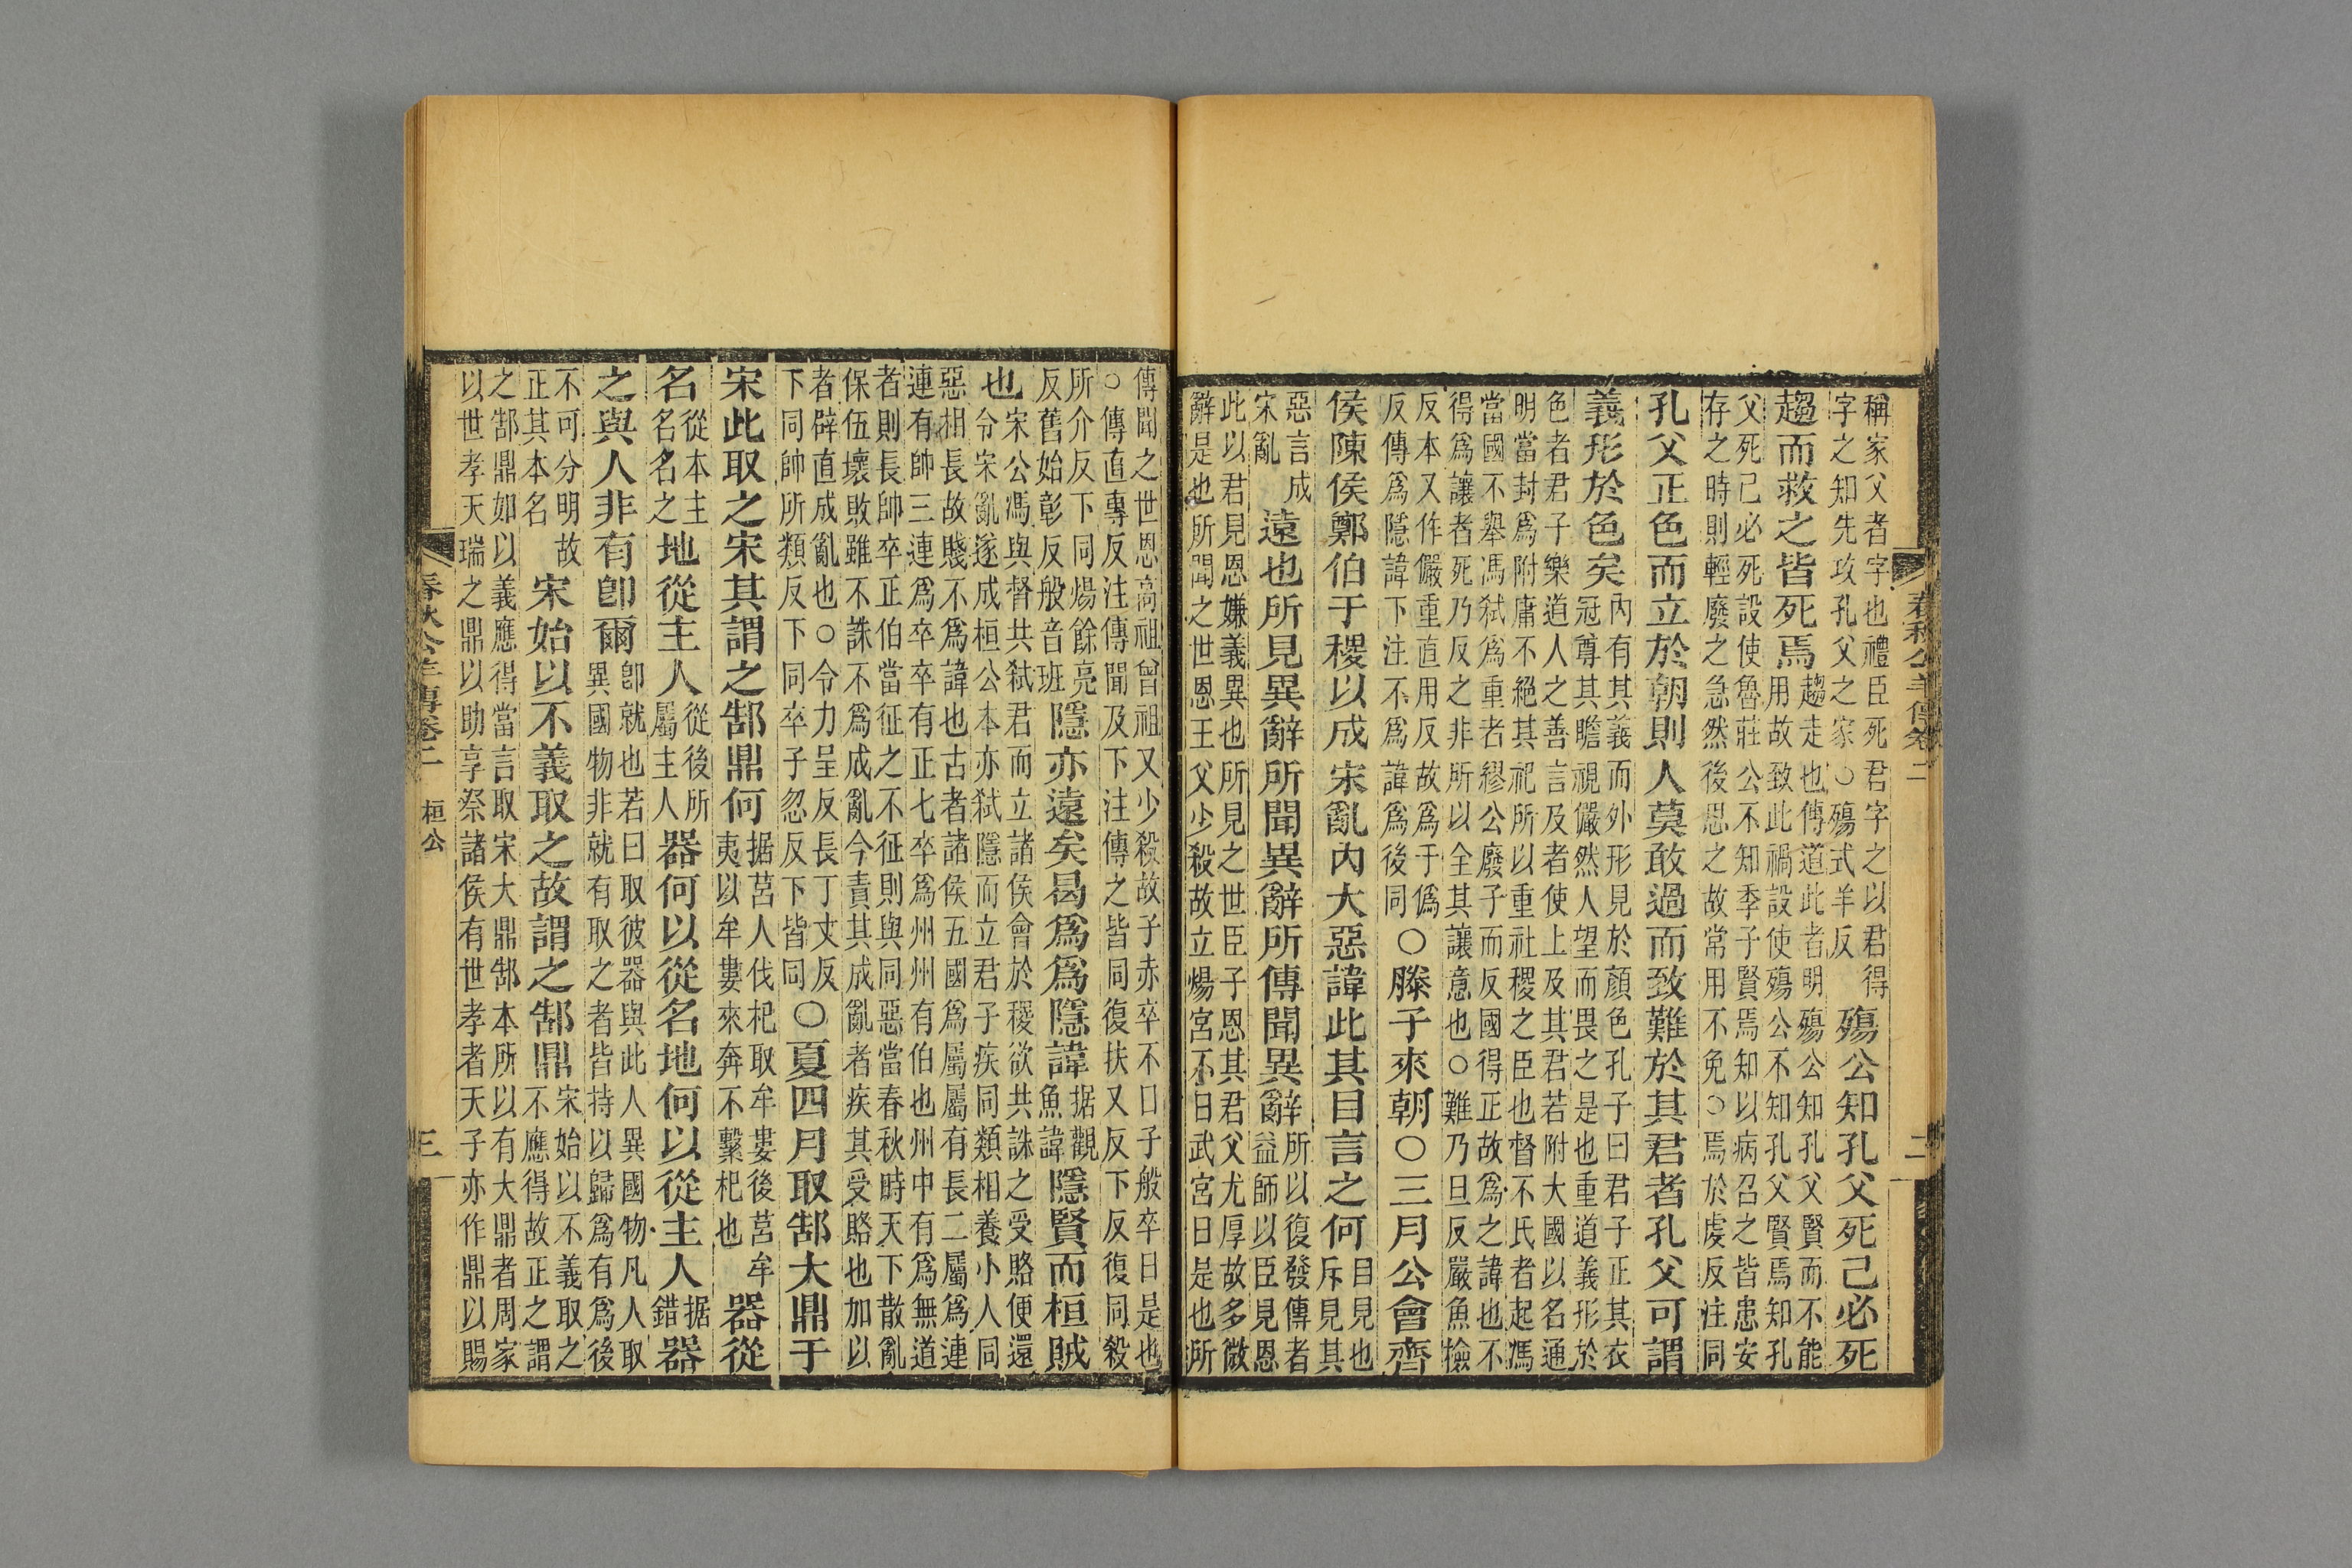 稱家父者字也禮臣死君字之以君得
字之知先攻孔父之家○殤式羊反
殤公知孔父死己必死
趨而救之皆死焉
趨走也傳道此者明殤公知孔父賢而不能
用故致此禍設使殤公不知孔父賢焉知孔
父死己必死設使魯莊公不知季子賢焉知以病召之皆患安
存之時則輕廢之急然後思之故常用不免○焉於虔反注同
孔父正色而立於朝則人莫敢過而致難於其君者孔父可謂
義形於色矣
內有其義而外形見於顏色孔子曰君子正其衣
冠尊其瞻視儼然人望而畏之是也重道義形於
色者君子樂道人之善言及者使上及其君若附大國以名通
明當封爲附庸不絕其祀所以重社稷之臣也督不氏者起馮
當國不舉馮弒爲重者繆公廢子而反國得正故爲之諱也不
得爲讓者死乃反之非所以全其讓意也○難乃旦反嚴魚撿
反本又作儼重直用反故爲于僞
反傳爲隱諱下注不爲諱爲後同
○滕子來朝○三月公會齊
侯陳侯鄭伯于稷以成宋亂內大惡諱此其目言之何
目見也
斥見其
惡言成
宋亂
遠也所見異辭所聞異辭所傳聞異辭
所以復發傳者
益師以臣見恩
此以君見恩嫌義異也所見之世臣子恩其君父尤厚故多微
辭是也所聞之世恩王父少殺故立煬宮不日武宮日是也所
傳聞之世恩高祖曾祖又少殺故子赤卒不日子般卒日是也
○傳直專反注傳聞及下注傳之皆同復扶又反下反復同殺
所介反下同煬餘亮
反舊始彰反般音班
隱亦遠矣曷爲爲隱諱
据觀
魚諱
隱賢而桓賊
也
宋公馮與督共弒君而立諸侯會於稷欲共誅之受賂便還
令宋亂遂成桓公本亦弒隱而立君子疾同類相養小人同
惡相長故賤不爲諱也古者諸侯五國爲屬屬有長二屬爲連
連有帥三連爲卒卒有正七卒爲州州有伯也州中有爲無道
者則長帥卒正伯當征之不征則與同惡當春秋時天下散亂
保伍壞敗雖不誅不爲成亂今責其成亂者疾其受賂也加以
者辟直成亂也○令力呈反長丁丈反
下同帥所類反下同卒子忽反下皆同
○夏四月取郜大鼎于
宋此取之宋其謂之郜鼎何
据莒人伐杞取牟婁後莒牟
夷以牟婁來奔不繫杞也
器從
名
從本主
名名之
地從主人
從後所
屬主人
器何以從名地何以從主人
据
錯
器
之與人非有卽爾
卽就也若曰取彼器與此人異國物凡人取
異國物非就有取之者皆持以歸爲有爲後
不可分明故
正其本名
宋始以不義取之故謂之郜鼎
宋始以不義取之
不應得故正之謂
之郜鼎如以義應得當言取宋大鼎郜本所以有大鼎者周家
以世孝天瑞之鼎以助享祭諸侯有世孝者天子亦作鼎以賜
春秋公羊傳卷二 桓公
三